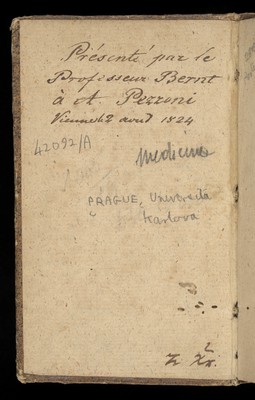 Présenté par le
Professeur Bernt
à A. Pezzoni
Vienne le 2 avril 1824
42092/A
Medicine
PRAGUE, Universita
Karlova